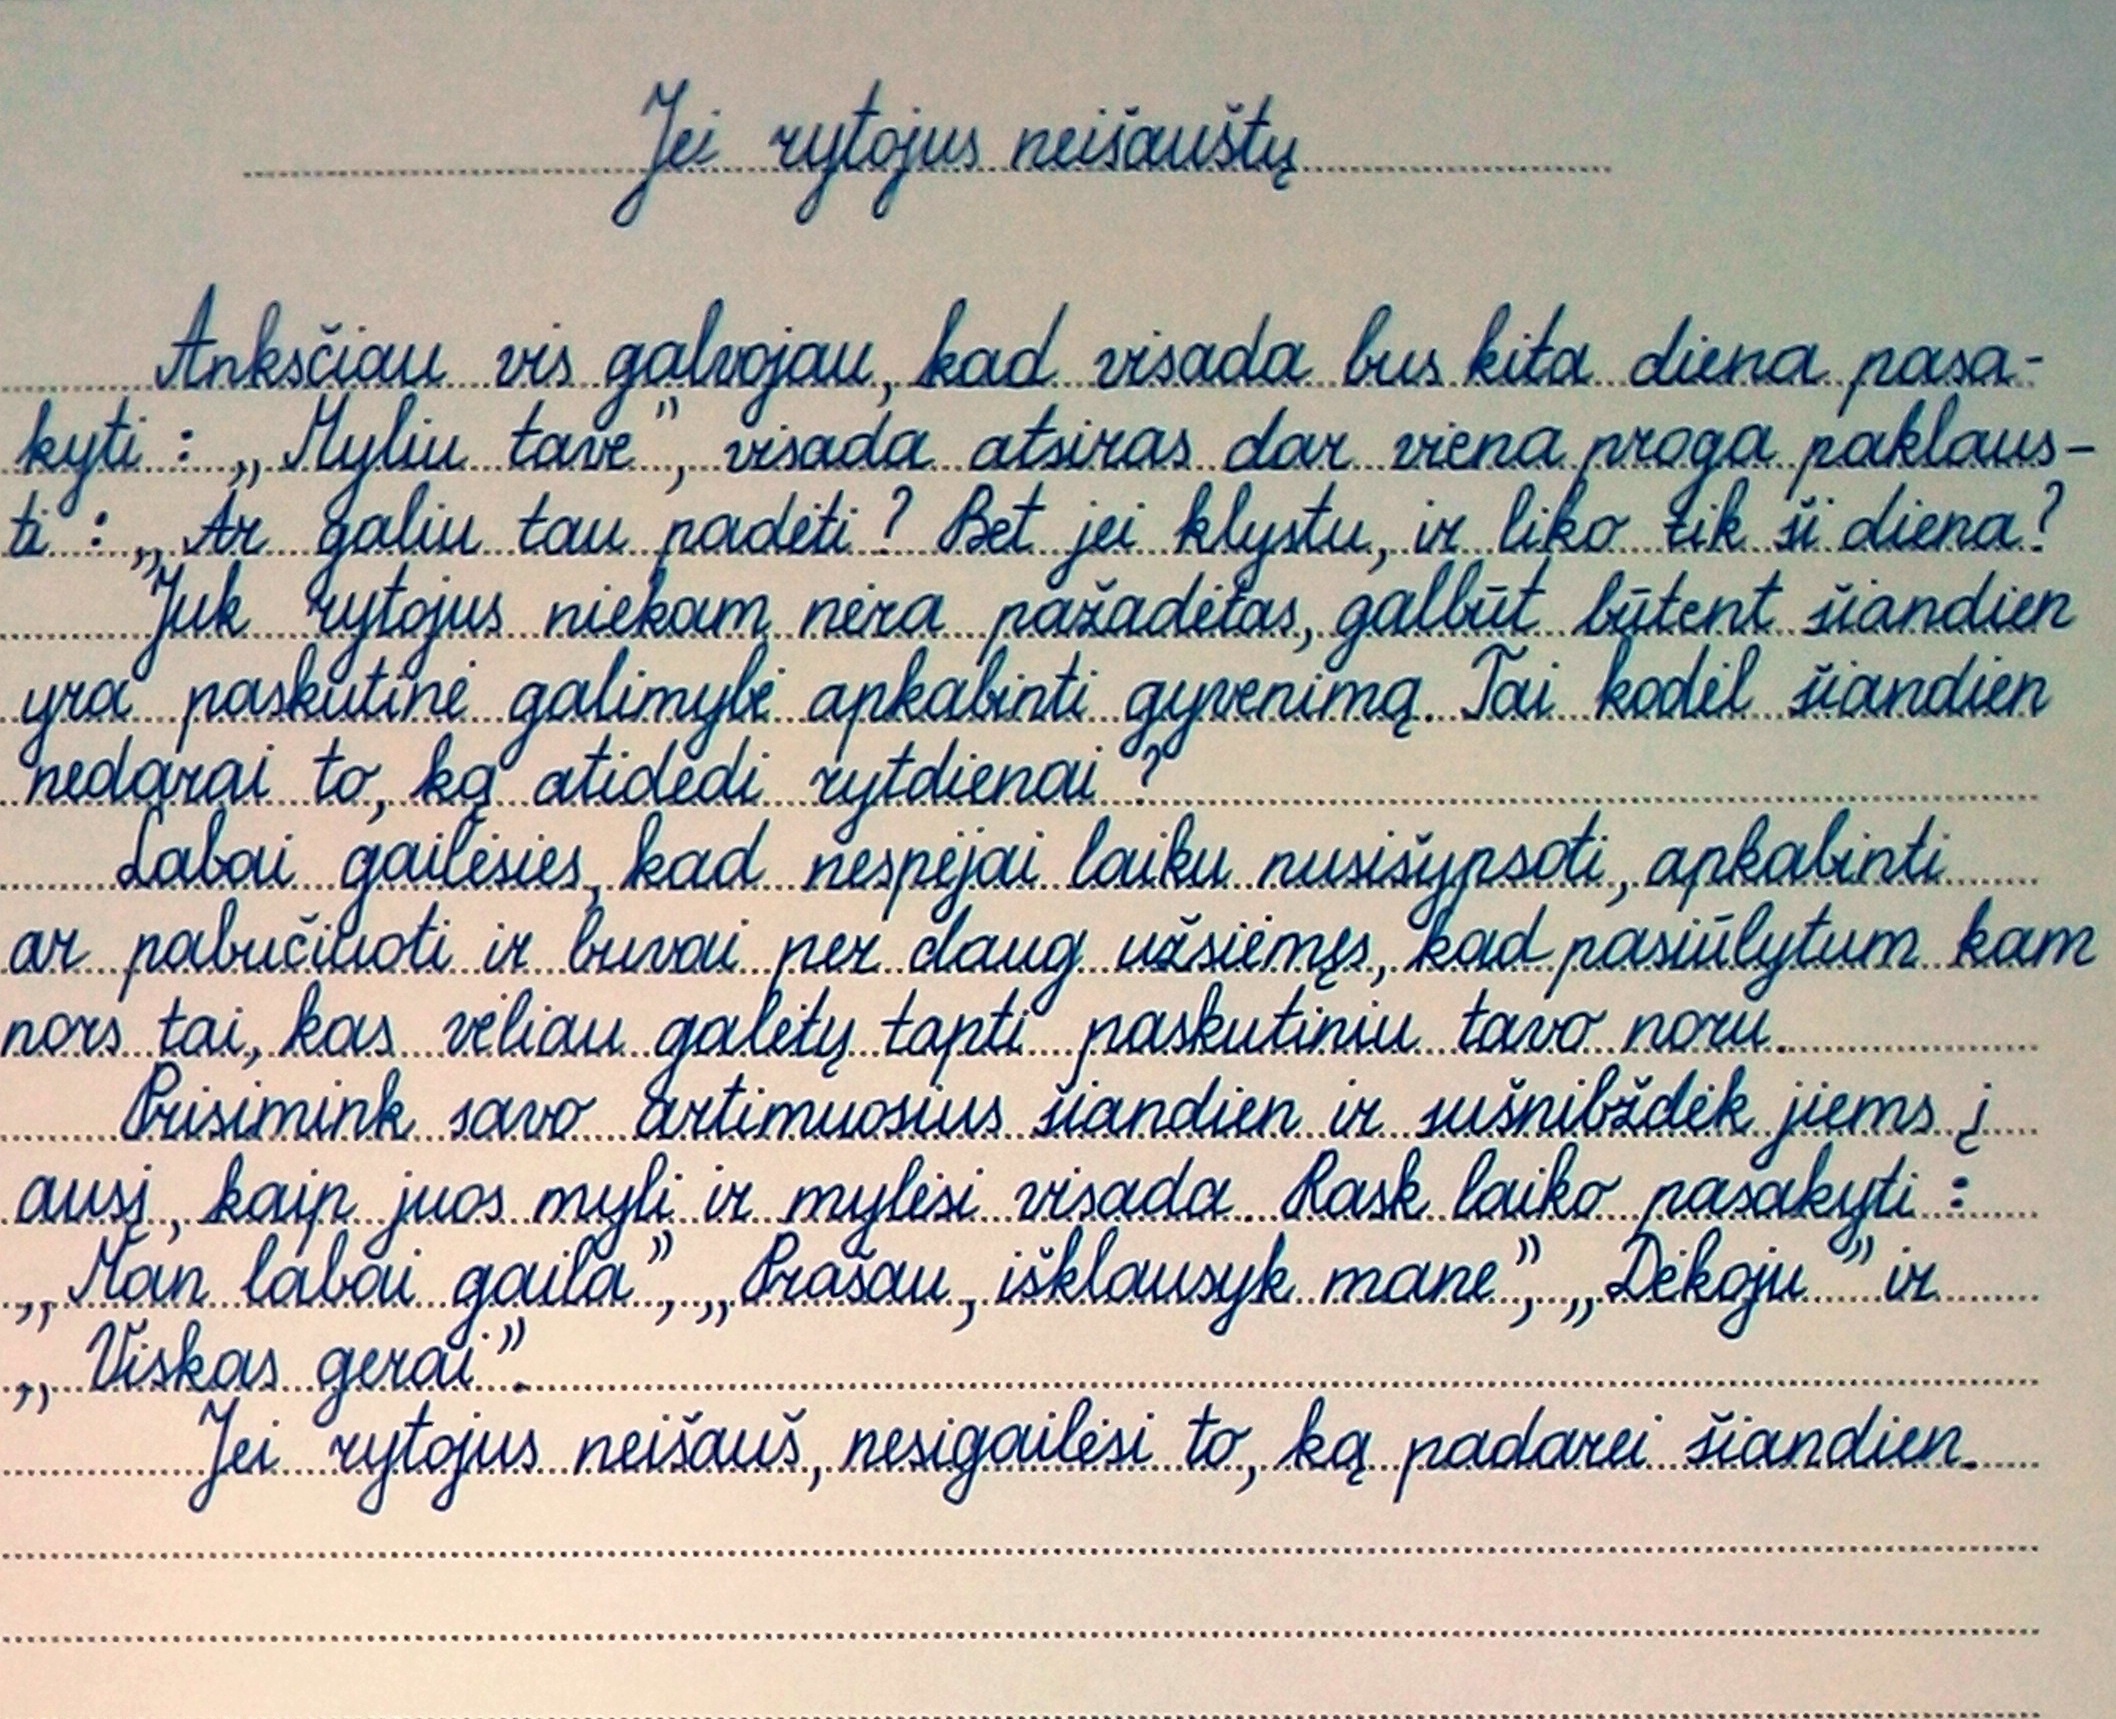 Jei rytojus neišauštų
Anksčiau vis galvojau, kad visada bus kita diena pasa-
kyti : „Myliu tave”, visada atsiras dar viena proga paklaus-
ti : „Ar galiu tau padėti? Bet jei klystu, ir liko tik ši diena?
Juk rytojus niekam nėra pažadėtas, galbūt būtent šiandien
yra paskutinė galimybė apkabinti gyvenimą. Tai kodėl šiandien
nedarai to, ką atidedi rytdienai?
Labai gailėsies, kad nespėjai laiku nusišypsoti, apkabinti
ar pabučiuoti ir buvai per daug užsiėmęs, kad pasiūlytum kam
nors tai, kas vėliau galėtų tapti paskutiniu tavo noru.
Prisimink savo artimuosius šiandien ir sušnibždėk jiems į
ausį, kaip juos myli ir mylėsi visada. Rask laiko pasakyti :
„Man labai gaila”, „Prašau, išklausyk mane”, „Dėkoju” ir
„Viskas gerai”.
Jei rytojus neišauš, nesigailėsi to, ką padarei šiandien.